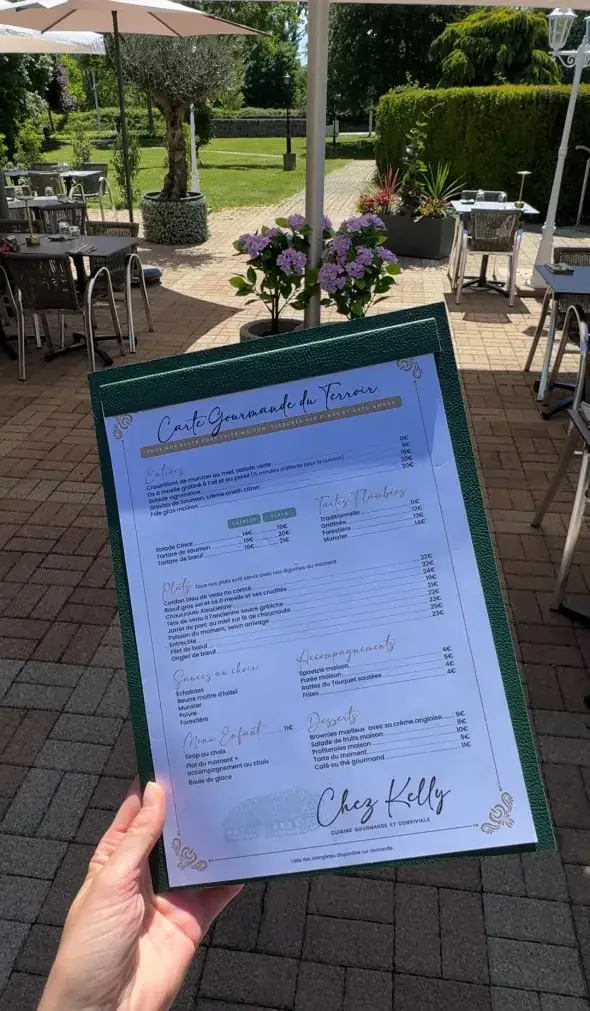 Carte Gourmande du Terroir
TOUS NOS PLATS SONT FAITS MAISON, ÉLABORÉS SUR PLACE ET AVEC AMOUR
Entrées
Croustillant de munster au miel, salade verte
Os à moelle gratiné à l'ail et au persil (15 minutes d'attente pour la cuisson)
Salade vigneronne
Gravlax de saumon, crème aneth citron
Foie gras maison 20€
ENTRÉE PLATS
Salade César 14€ 19€
Tartare de saumon 15€ 20€
Tartare de bœuf 16€ 21€
Tartes Flambées
Traditionnelle 11€
Gratinée 12€
Forestière 13€
Munster 14€
Plats Tous nos plats sont servis avec nos légumes du moment
Cordon bleu de veau au comté 22€
Bœuf gros sel et os à moelle et ses crudités 22€
Choucroute Alsacienne 24€
Tête de veau à l'ancienne sauce gribiche 19€
Jarret de porc au miel sur fit de choucroute 21€
Poisson du moment, selon arrivage 22€
Entrecôte 23€
Filet de bœuf 25€
Onglet de bœuf 23€
Sauces au choix
Échalotes
Beurre maître d'hôtel
Munster
Poivre
Forestière
Accompagnements
Spaetzle maison 4€
Purée maison 5€
Rattes du Touquet sautées 4€
Frites 4€
Menu Enfant 11€
Sirop au choix
Plat du moment +
accompagnement au choix
Boule de glace
Desserts
Brownies mœlleux avec sa crème anglaise 9€
Salade de fruits maison 8€
Profiteroles maison 10€
Tarte du moment 9€
Café ou thé gourmand 11€
Chez Kelly
CUISINE GOURMANDE ET CONVIVIALE
Liste des allergènes disponible sur demande.